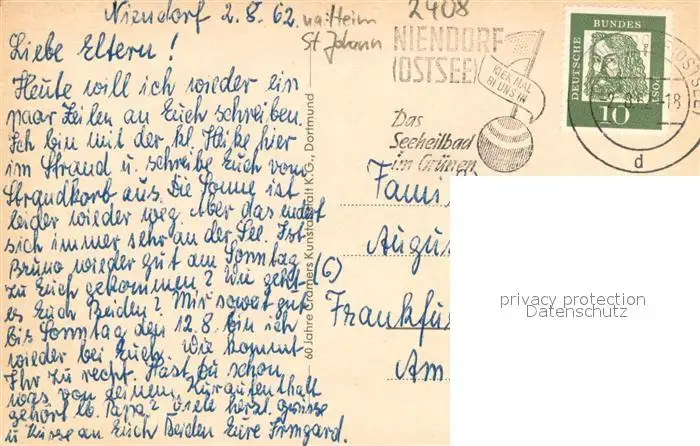 Niendorf 2.8.62
Liebe Eltern!
Heute will ich wieder ein
paar Zeilen an Euch schreiben.
Ich bin mit der kl. Heike hier
im Strand u. schreibe Euch vom
Strandkorb aus. Die Sonne ist
leider wieder weg. Aber das ändert
sich immer sehr an der See. Ist
Bruno wieder gut am Sonntag
zu Euch gekommen? Wie geht
es Euch Beiden? Mir soweit gut
bis Sonntag den 12.8. bin ich
wieder bei Euch. Wie kommt
Ihr zu recht. Hast du schon
was von deinem Kuraufenthalt
gehört lb. Papa? Viele herzl. Grüsse
u Küsse an Euch Beiden Eure Irmgard.
St Johann
60 Jahre Cramers Kunstanstalt K.G., Dortmund
2408
NIENDORF
(OSTSEE)
KIEK MAL
BI UNS IN
Das
Seeheilbad
im Grünen
DEUTSCHE BUNDESPOST
10
18
d
Fami
Augu
(6)
Frankfu
Am
privacy protection
Datenschutz